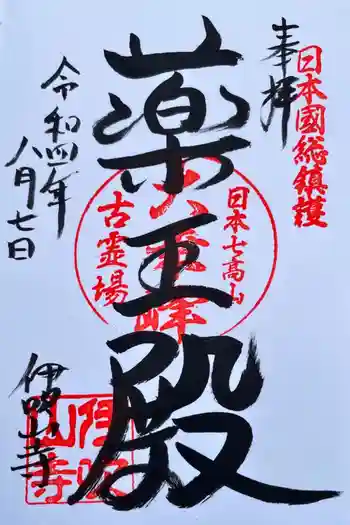 日本國総鎮護
奉拝
薬王殿
日本七高山
古霊場
令和四年
八月七日
伊吹山寺
伊吹
山寺